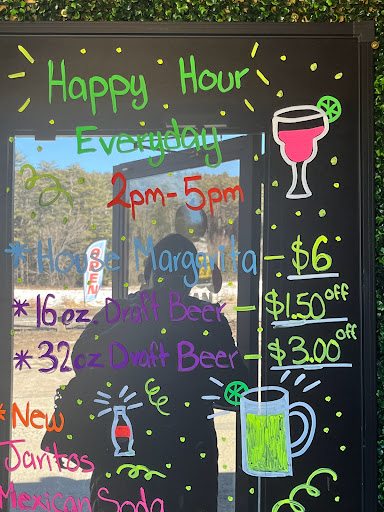 Happy Hour
Everyday
2pm-5pm
*House Margarita - $6
*16oz. Draft Beer - $1.50 off
*32oz Draft Beer - $3.00 off
*New
Jaritos
Mexican Soda
OPEN